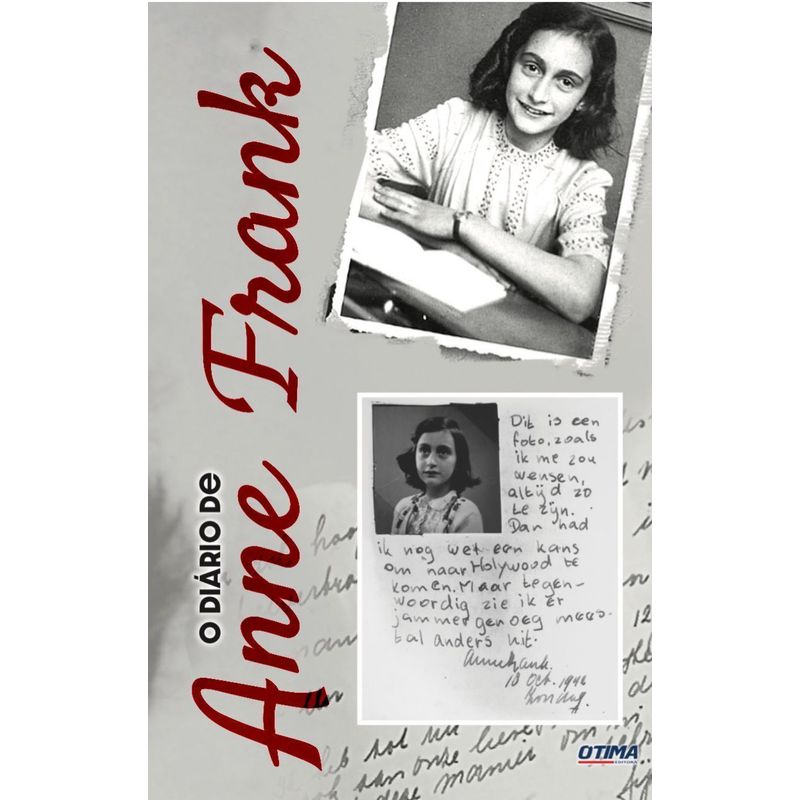 O DIÁRIO DE
Anne Frank
Dit is een
foto, zoals
ik me zou
wensen,
altijd zo
te zijn.
Dan had
ik nog wel een kans
om naar Holywood te
komen. Maar tegen-
woordig zie ik er
jammer genoeg mees-
tal anders uit.
Annefrank.
10 Oct. 1942
Zondag.
ook aan onze lieve
deze manier om
12
OTIMA
EDITORA